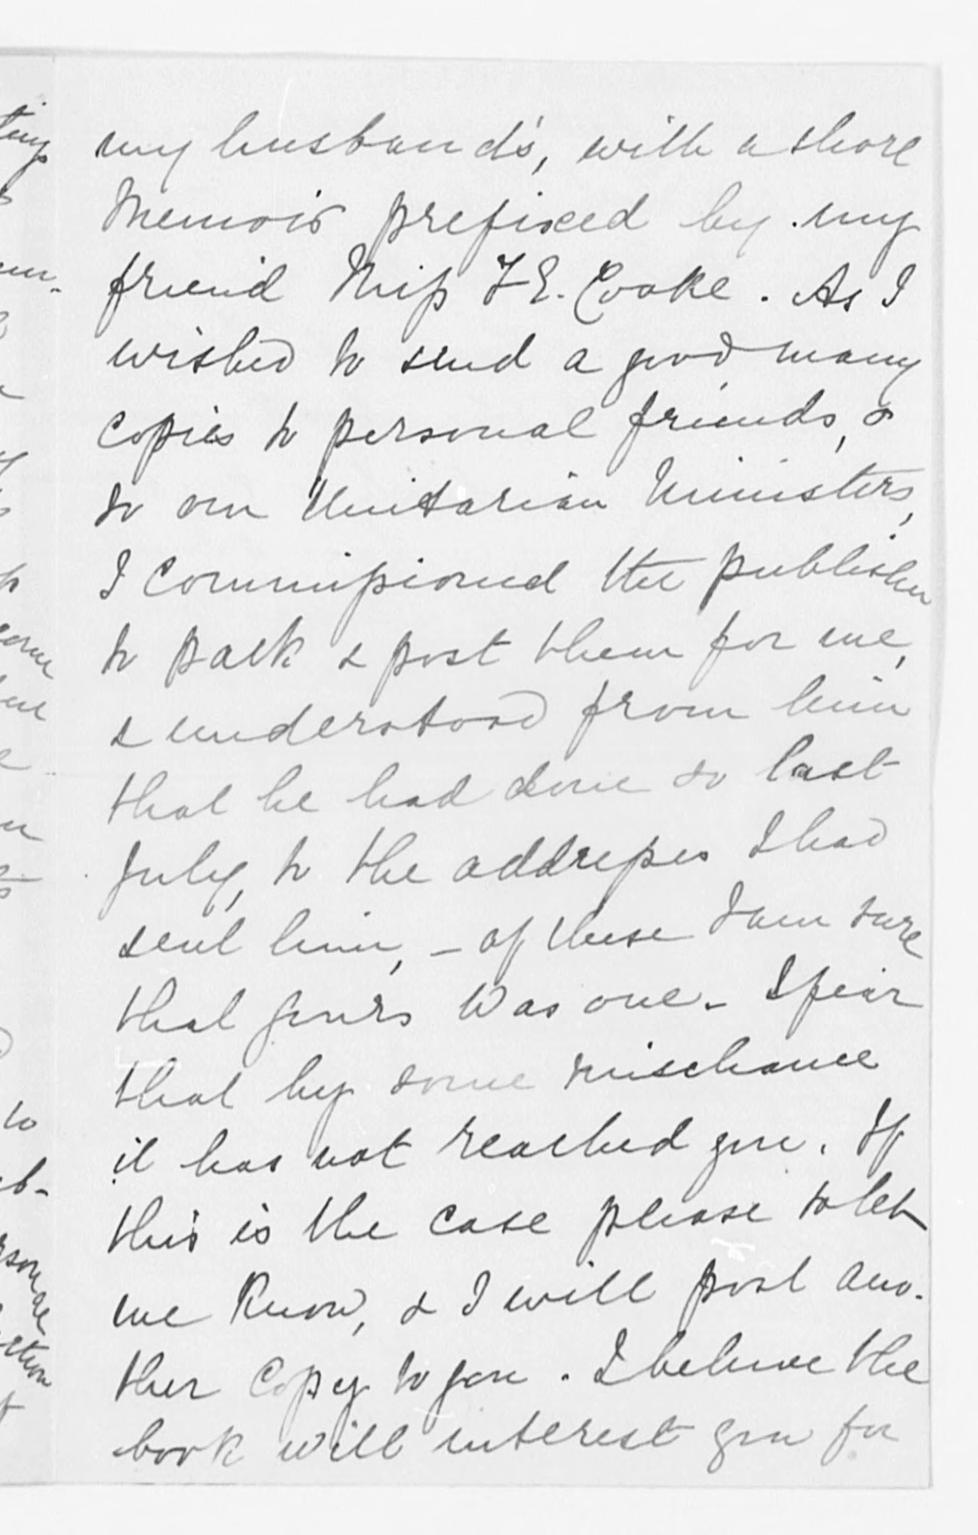 my husband's, with a short
Memoir prefixed by my
friend Miss F E. Cooke. As I
wished to send a good many
copies to personal friends, &
to our Unitarian Ministers,
I commissioned the publisher
to pack & post them for me,
& understood from him
that he had done so last
July, to the addresses I had
sent him, – of these I am sure
that yours was one – I fear
that by some mischance
it has not reached you. If
this is the case please to let
me Know, & I will post ano-
ther copy to you. I believe the
book will interest you for